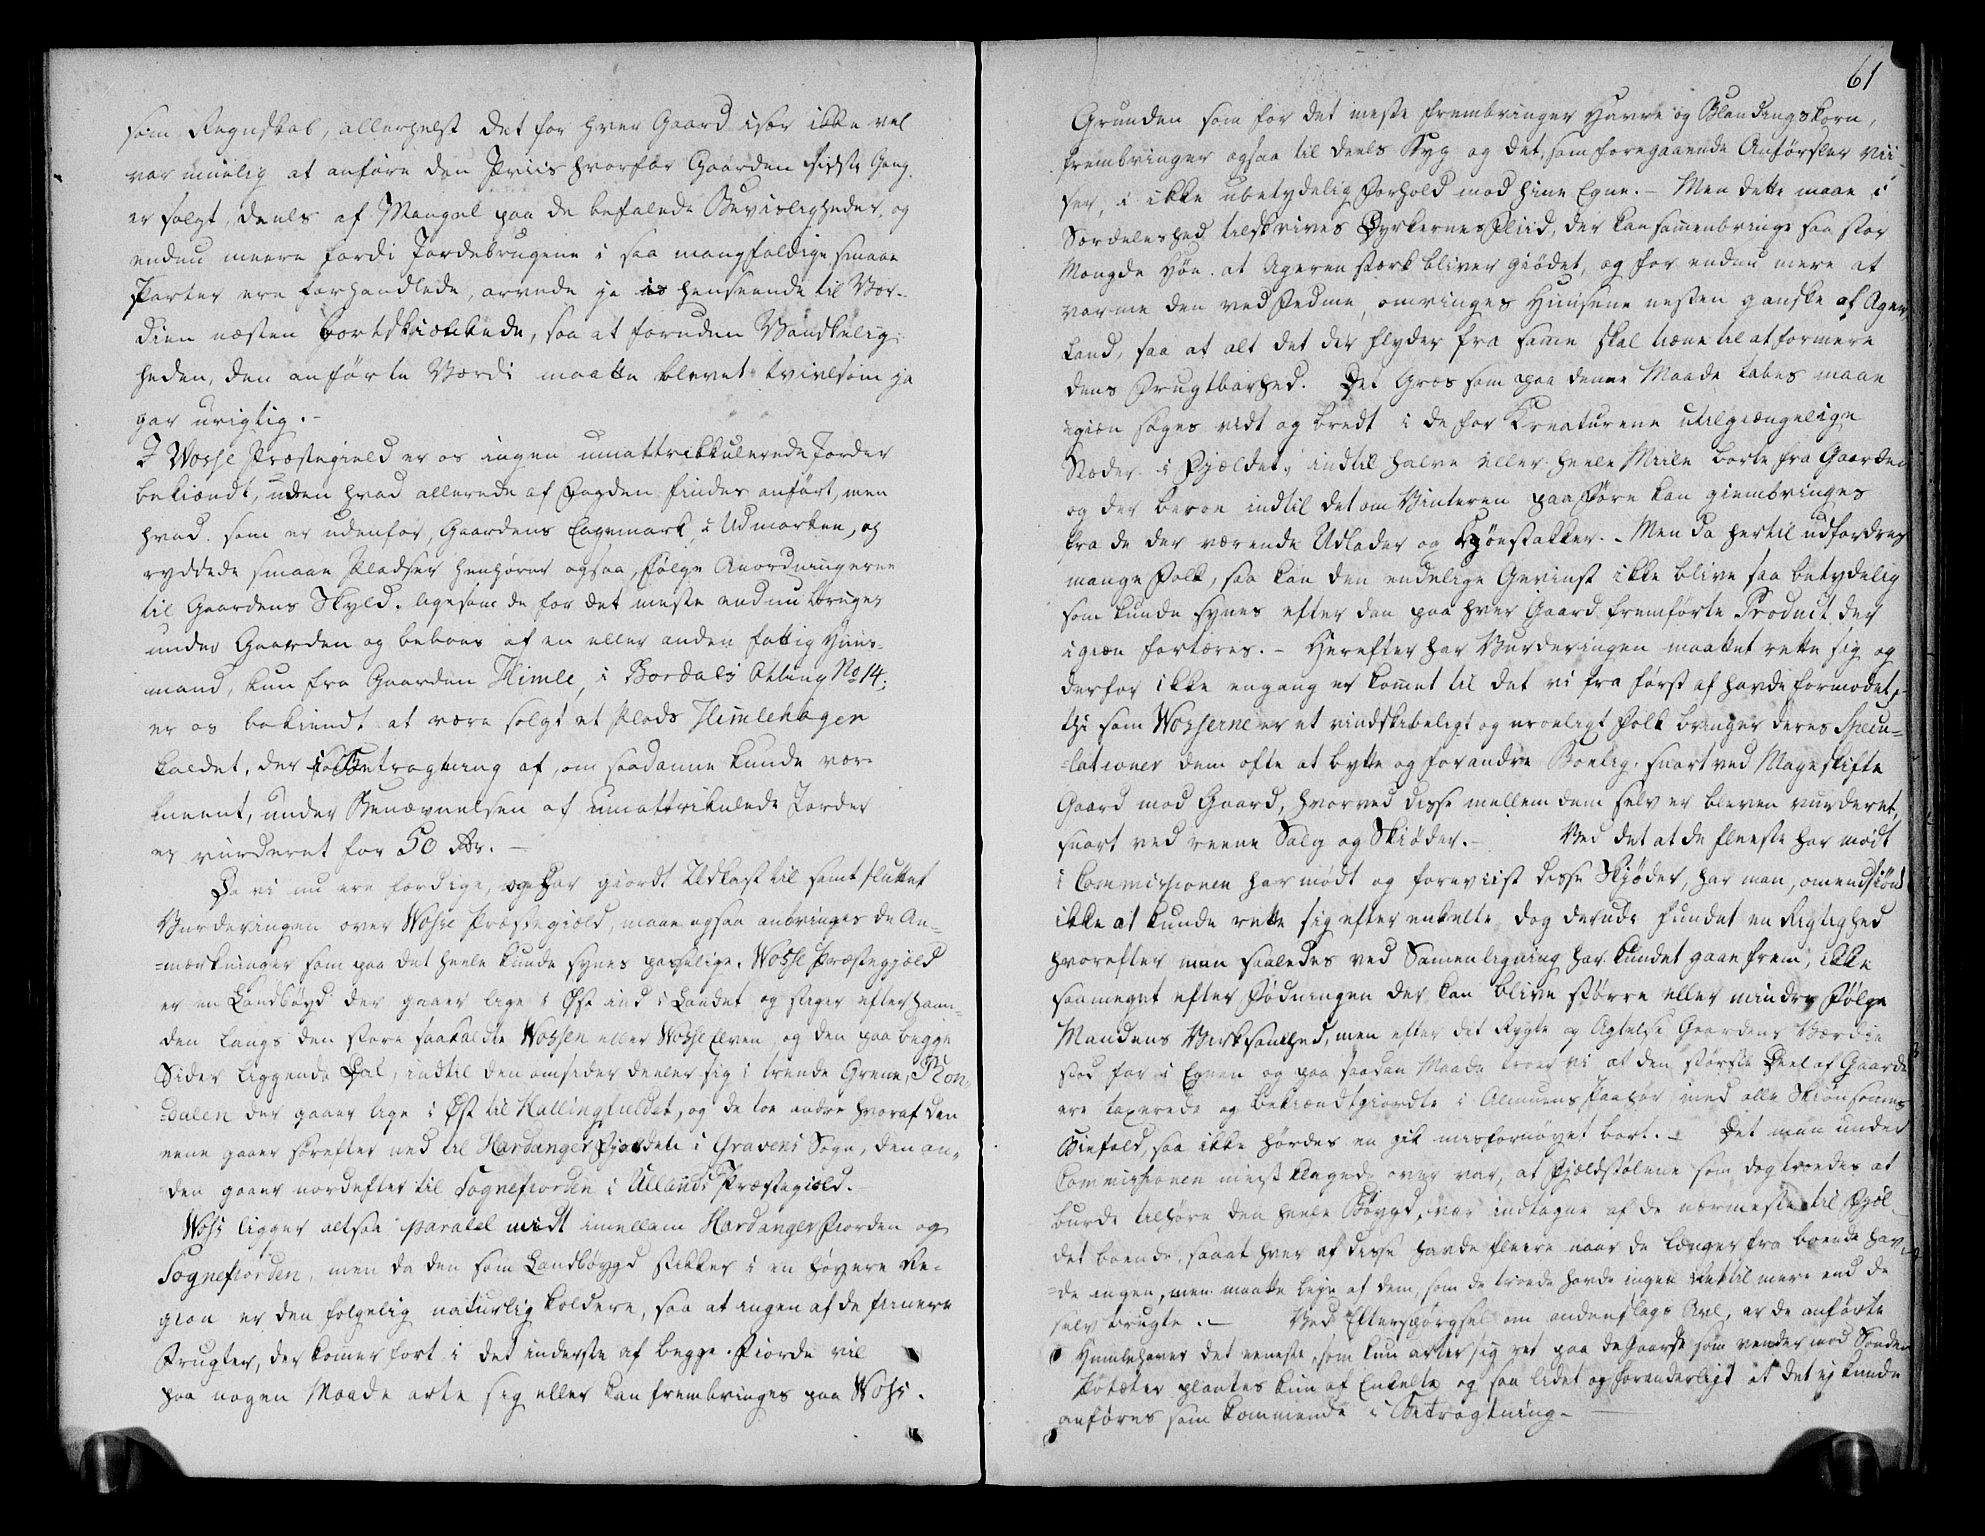 som Regnskab, allerhelst det for hver Gaard især ikke vel
var muelig at anføre den Priis hvorfor Gaarden sidste Gang
er solgt, deels af Mangel paa de befalede Bevisligheder, og
endnu meere fordi Jordebrugene i saa mangfoldige smaae
Parter ere forhandlede, arvede ja i henseende til Vær-
dien næsten bortskiænkede, saa at foruden Vanskelig-
heden, den anførte Værdi maatte blevet tvivlsom ja
gar urigtig.-
I Wosse Præstegield er os ingen umattrikkulerede Jorder
bekiændt, uden hvad allerede af Fogden findes anført, men
hvad som er udenfor, Gaardens Eagemark, i Udmarken, og
ryddede smaae Pladser henhører ogsaa, følge Anordningerne
til Gaardens Skyld, ligesom de for det meste endnu bruges
under Gaarden og beboes af en eller anden fattig Huus-
mand, kun fra Gaarden Himle, i Bordals Otting No 14.
er os bekiendt at være solgt et Plads Himlehagen
kaldet, der i Betragtning af, om saadanne kunde vær
meent, under Benævnelsen af umattrikulede Jorder
er vurderet for 50 Rdr. -
Da vi nu ere færdige, og har giordt Udkast til samt sluttet
Vurderingen over Wosse Præstegiæld, maae ogsaa anbringes de An-
=mærkninger som paa det heele kunde synes passelige. Wosse Præstegjæld
er en Landbøygd der gaaer lige i Øst ind i Landet og stiger efterhaan-
den langs den store saakaldte Wossen eller Wosse Elven, og den paa begge
Sider liggende Dal, indtil den omsider deeler sig i trende Grene, Ron-
=dalen der gaaer lige i Øst til Hallingfieldet, og de toe andre hvoraf den
eene gaaer sørefter ned til Hardanger Fjorden i Gravens Sogn, den an-
den gaaer nordefter til Sognefiorden i Ullands Præstegield.
Woss ligger altsaa paralel midt imellem Hardangerfiorden og
Sognefiorden, men da den som Landbøygd stikker i en høyere Re-
gion er den følgelig naturlig koldere, saa at ingen af de finere
Frugter, der komer fort i det inderste af begge Fiorde vil
paa nogen Maade arte sig eller kan frembringes paa Woss.
61
Grunden som for det meste frembringer Havre og Blandingskorn,
frembringer ogsaa til deels Byg og det, som foregaaende Anførsler vii-
ser, i ikke ubetydelig Forhold mod hine Egne.- Men dette maae i
Særdeleshed tilskrives Dyrkernes Fliid, der kan sammenbringe saa stor
Mængde Høe at Ageren stærk bliver giødet, og for endnu mere at
varme den ved Fedme, omringes Huusene nesten ganske af Ager
Land, saa at alt det der flyder fra samme skal tiene til at formere
dens Frugtbarhed. Det Græs som paa denne Maade tabes maae
igien søges vidt og bredt i de for Kreaturene utilgiængelige
Stæder i Fjældet, indtil halve eller heele Miile borte fra Gaarden
og der beroe indtil det om Vinteren paa Føre kan hiembringes
fra de der værende Udlader og Høestakker.- Men da hertil udfordres
mange Folk, saa kan den endelige Gevinst ikke blive saa betydelig
som kunde synes efter den paa hver Gaard fremførte Product der
igien fortæres.- Herefter har Vurderingen maattet rette sig og
derfor ikke engang er kommet til det vi fra først af havde formodet,
thi som Wosserne er et vindskibeligt og uroeligt Folk bringer deres Specu-
=lationer dem ofte at bytte og forandre Boelig, snart ved Mageskifte
Gaard mod Gaard, hvorved disse mellem dem selv er bleven vurderet,
snart ved reene Salg og Skiøder.- Ved det at de fleeste har mødt
i Commissionen har mødt og foreviist disse Skjøder, har man, omendskiønt
ikke at kunde rette sig efter enkelte, dog derudi fundet en Rigtighed
hvorefter man saaledes ved Samenligning har kundet gaae frem, ikke
saameget efter Fødningen der kan blive større eller mindre følge
Mandens Virksomhed, men efter dit Rygte og Agtelse Gaardens Værdie
stod for i Egnen og paa saadan Maade troer vi at den største Deel af Gaarde
ere taxerede og bekiændtgiordte i Almuens Paahør, med alle Skiønsomes
Biefald, saa ikke hørdes en gik misfornøyet bort.- Det man under
Commissionen meest klagede over var, at Fjældstølene som dog troedes at
burde tilhøre den heele Bøygd, var indtagne af de nærmeste til Fjæl-
det boende, saaat hver af disse havde fleere naar de længer fra boende hav-
=de ingen, men maatte leye af dem, som de troede havde ingen Ret til mere end de
selv brugte.- Ved Efterspørgsel om andenslags Avl, er de anførte
Humlehaver det eeneste, som kun arter sig ret paa de Gaarde som vender mod Sønden
Potæter plantes kun af Enkelte og saa lidet og foranderligt at det ej kunde
anføres som kommende i Betragtning.-